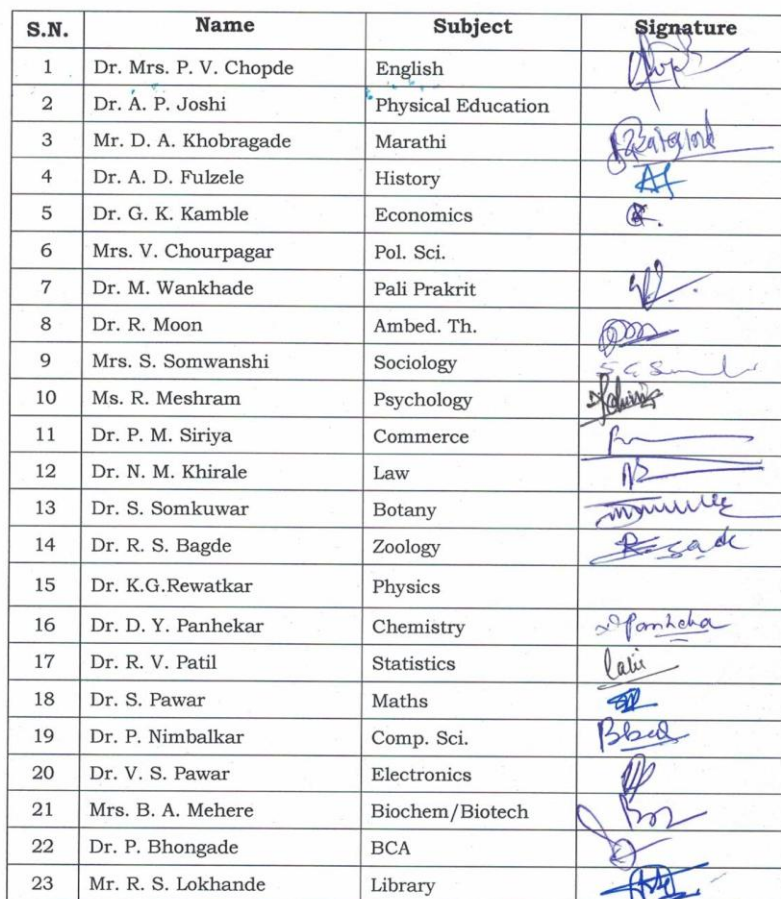 S.N. Name Subject Signature
1 Dr. Mrs. P. V. Chopde English
2 Dr. A. P. Joshi Physical Education
3 Mr. D. A. Khobragade Marathi
4 Dr. A. D. Fulzele History
5 Dr. G. K. Kamble Economics
6 Mrs. V. Chourpagar Pol. Sci.
7 Dr. M. Wankhade Pali Prakrit
8 Dr. R. Moon Ambed. Th.
9 Mrs. S. Somwanshi Sociology
10 Ms. R. Meshram Psychology
11 Dr. P. M. Siriya Commerce
12 Dr. N. M. Khirale Law
13 Dr. S. Somkuwar Botany
14 Dr. R. S. Bagde Zoology
15 Dr. K.G.Rewatkar Physics
16 Dr. D. Y. Panhekar Chemistry
17 Dr. R. V. Patil Statistics
18 Dr. S. Pawar Maths
19 Dr. P. Nimbalkar Comp. Sci.
20 Dr. V. S. Pawar Electronics
21 Mrs. B. A. Mehere Biochem/Biotech
22 Dr. P. Bhongade BCA
23 Mr. R. S. Lokhande Library